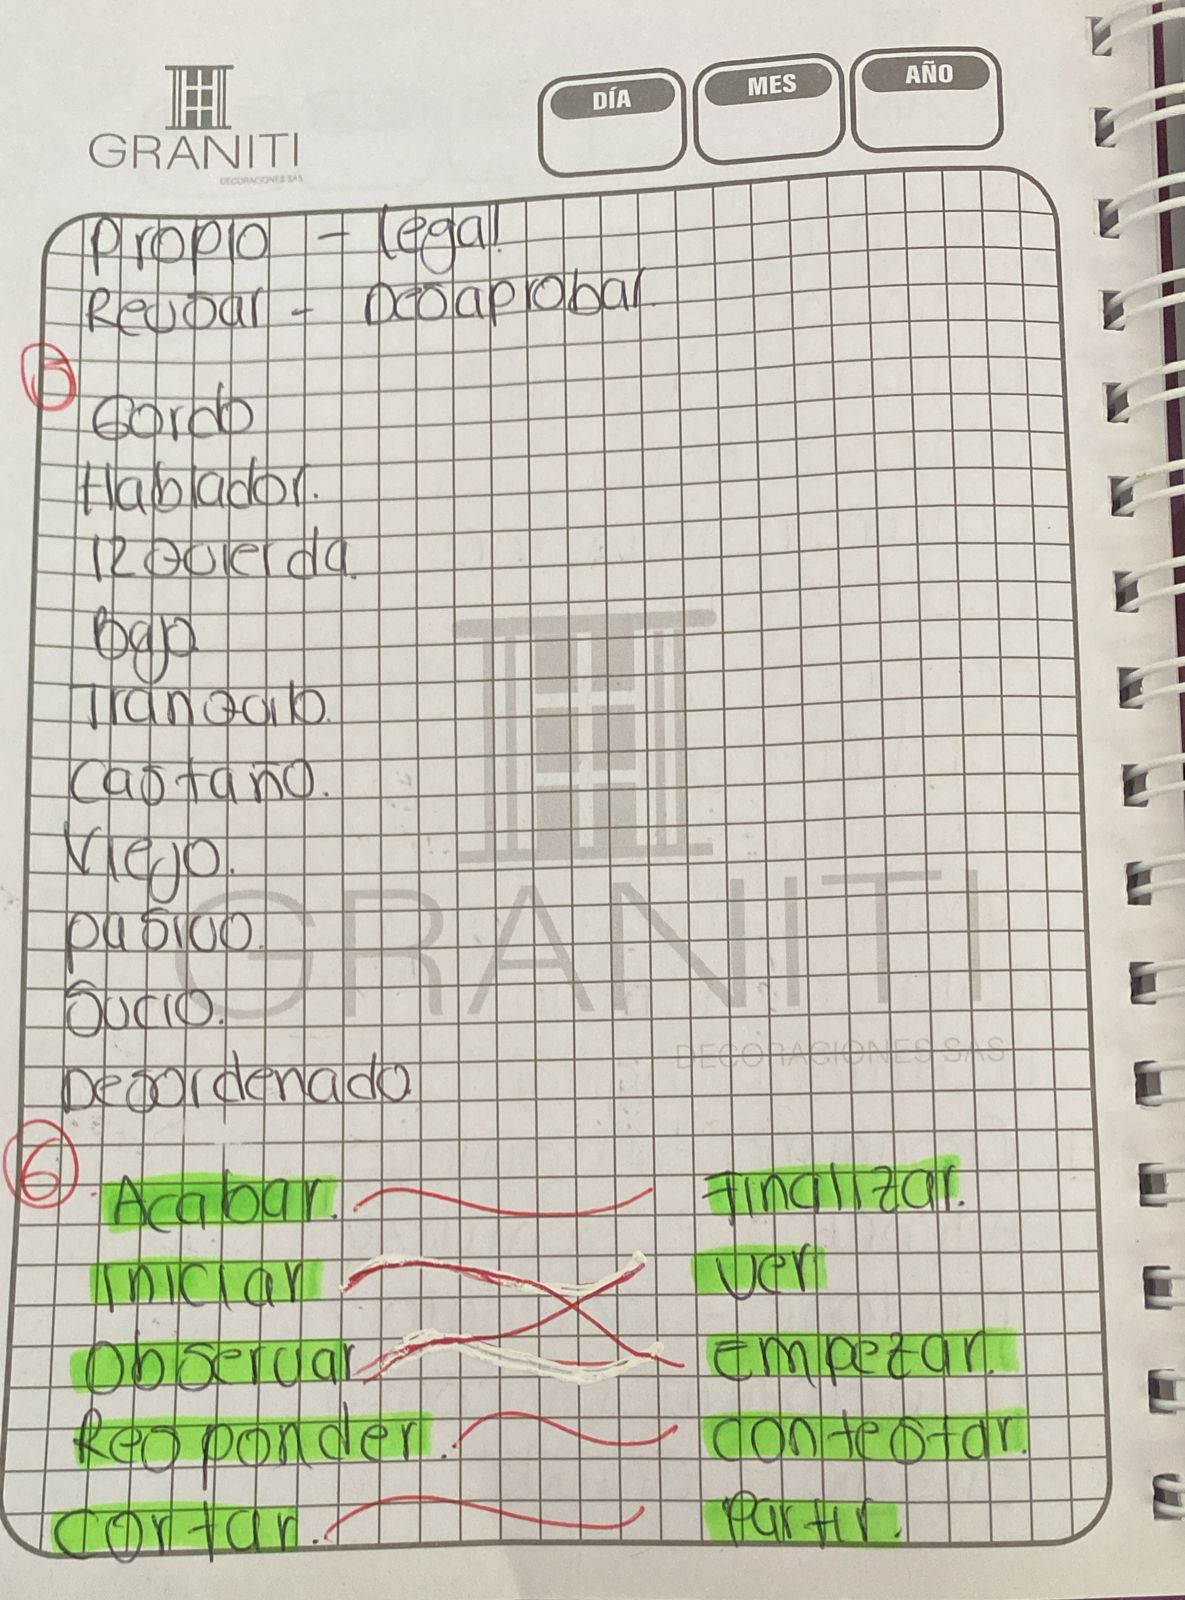 GRANITI
DECORACIONES SAS
DÍA MES AÑO
Propio - legal.
Recusar - Desaprobar.
5
Gordo
Hablador.
Izquierda.
Bajo
Tranquilo.
Castaño.
Viejo.
pasivo.
Sucio.
Desordenado
6. Acabar. Finalizar.
Iniciar Ver
Observar Empezar.
Responder. contestar.
Cortar. Partir.
GRANITI
DECORACIONES SAS